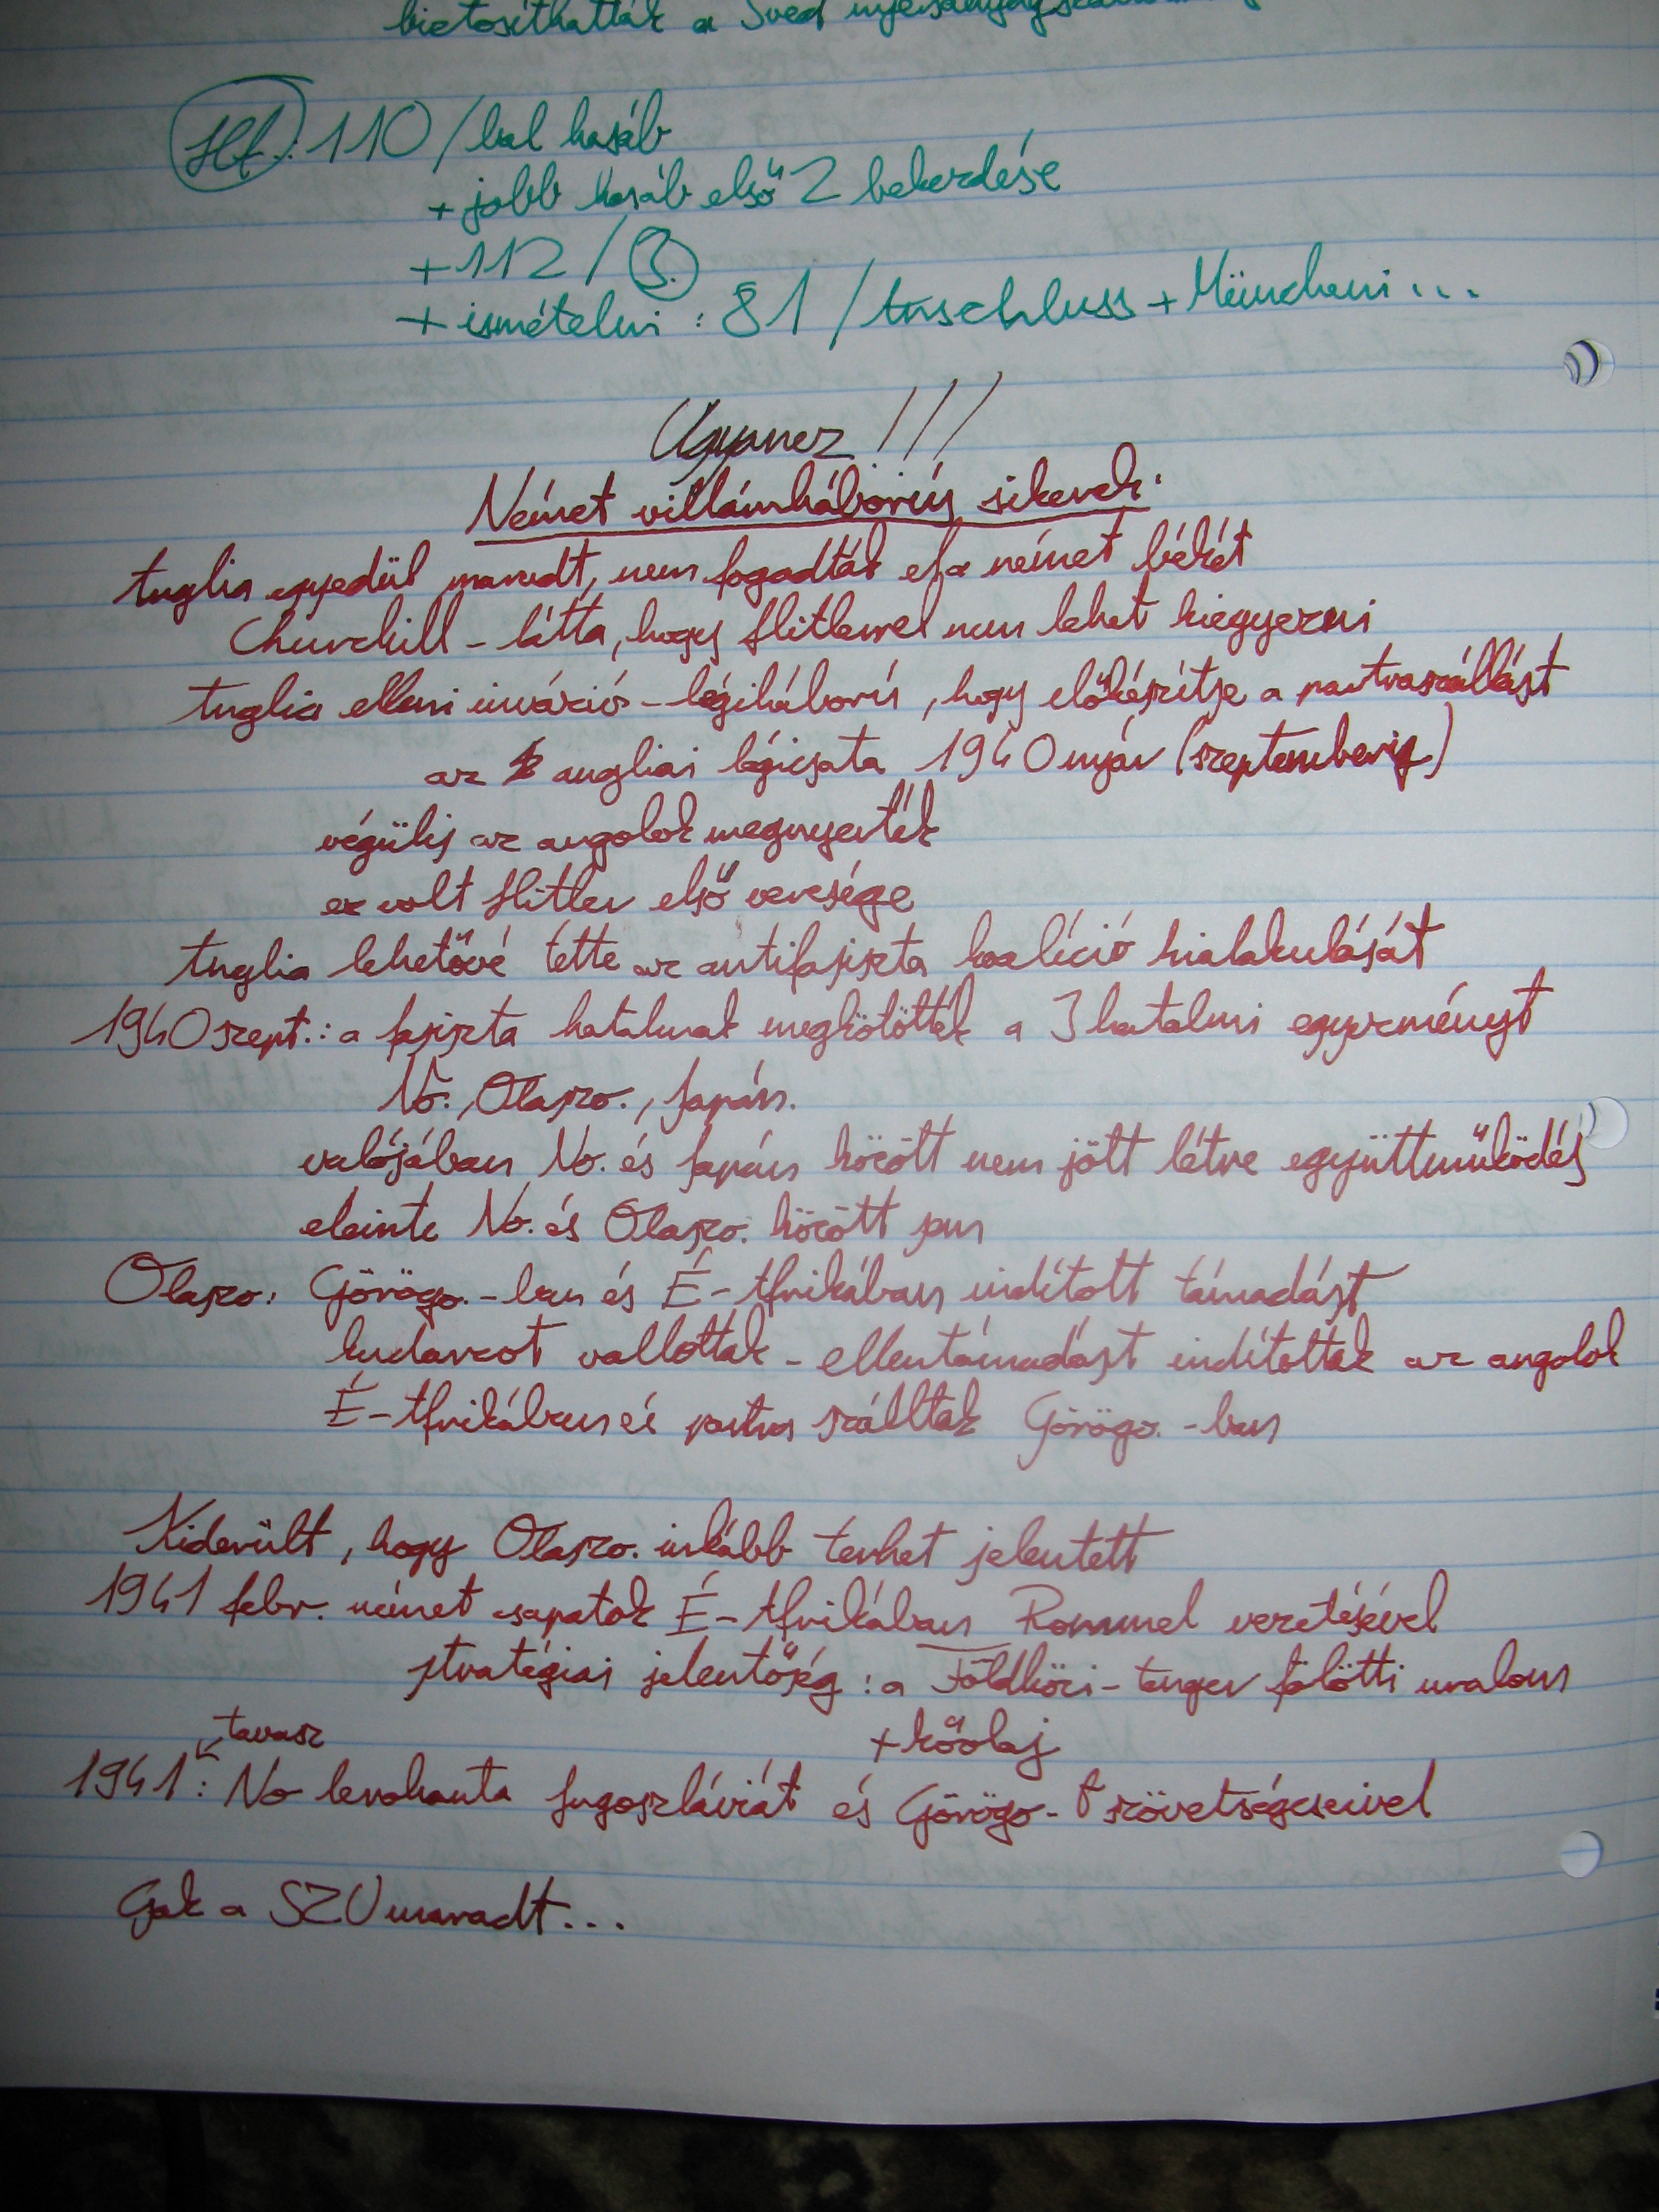 biztosíthatták a Svéd
Hf.: 110 / bal hasáb
+ jobb hasáb első 2 bekezdése
+ 112 / 3.
+ ismételni : 81 / Anschluss + Müncheni ...
Ugyanez !!!
Német villámháborús sikerek:
Anglia egyedül maradt, nem fogadták el a német békét
Churchill - látta, hogy Hitlerrel nem lehet kiegyezni
Anglia elleni invázió - légiháború, hogy előkészítse a partraszállást
az angliai légicsata 1940 nyár (szeptemberig)
végülis az angolok megnyerték
ez volt Hitler első veresége
Anglia lehetővé tette az antifasiszta koalíció kialakulását
1940 szept.: a fasiszta hatalmak megkötötték a 3 hatalmi egyezményt
No., Olaszo., Japán.
valójában No. és Japán között nem jött létre együttműködés
eleinte No. és Olaszo. között sem
Olaszo: Görögo.-ban és É-Afrikában indított támadást
kudarcot vallottak - ellentámadást indítottak az angolok
É-Afrikában és partra szálltak Görögo.-ban
Kiderült, hogy Olaszo. inkább terhet jelentett
1941 febr. német csapatok É-Afrikában Rommel vezetésével
stratégiai jelentőség : a Földközi-tenger fölötti uralom
+ kőolaj
tavasz
1941 : No lerohanta Jugoszláviát és Görögo-t szövetségeseivel
Csak a SZU maradt...